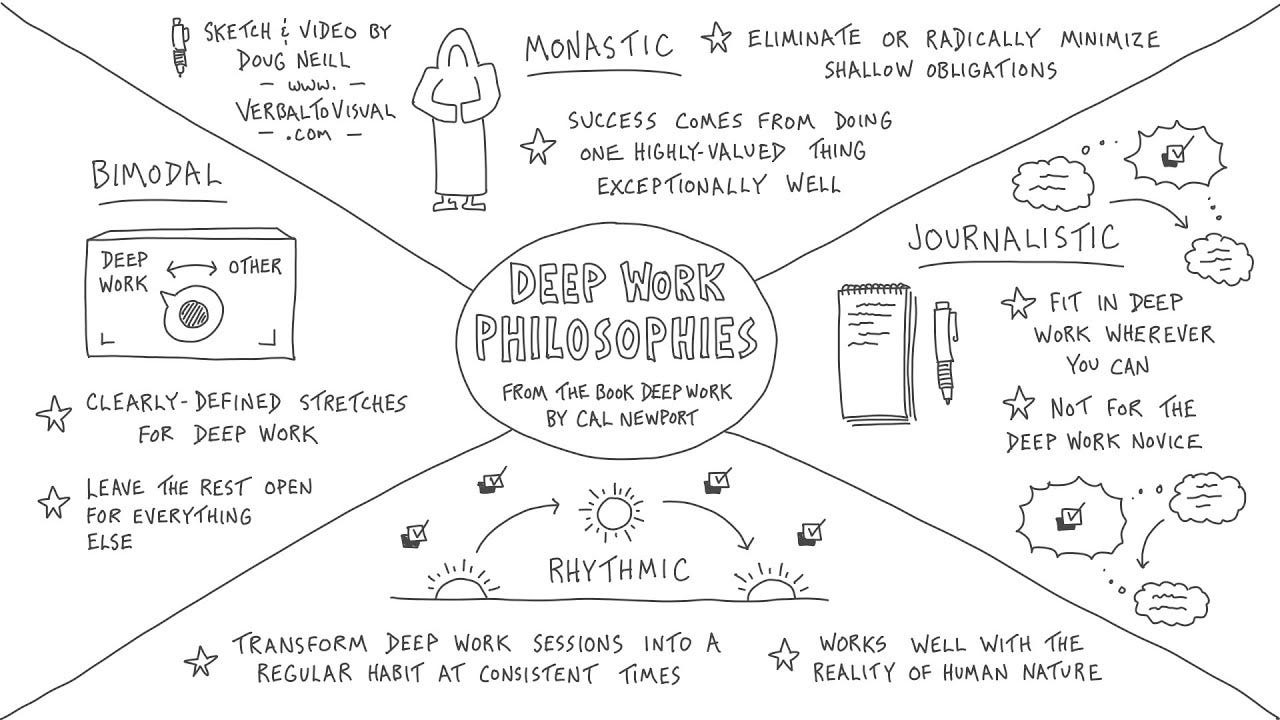 SKETCH & VIDEO BY
DOUG NEILL
— WWW. —
VERBALTOVISUAL
— .COM —
MONASTIC
ELIMINATE OR RADICALLY MINIMIZE
SHALLOW OBLIGATIONS
SUCCESS COMES FROM DOING
ONE HIGHLY-VALUED THING
EXCEPTIONALLY WELL
BIMODAL
DEEP
WORK
OTHER
CLEARLY-DEFINED STRETCHES
FOR DEEP WORK
LEAVE THE REST OPEN
FOR EVERYTHING
ELSE
DEEP WORK
PHILOSOPHIES
FROM THE BOOK DEEP WORK
BY CAL NEWPORT
JOURNALISTIC
FIT IN DEEP
WORK WHEREVER
YOU CAN
NOT FOR THE
DEEP WORK NOVICE
RHYTHMIC
TRANSFORM DEEP WORK SESSIONS INTO A
REGULAR HABIT AT CONSISTENT TIMES
WORKS WELL WITH THE
REALITY OF HUMAN NATURE